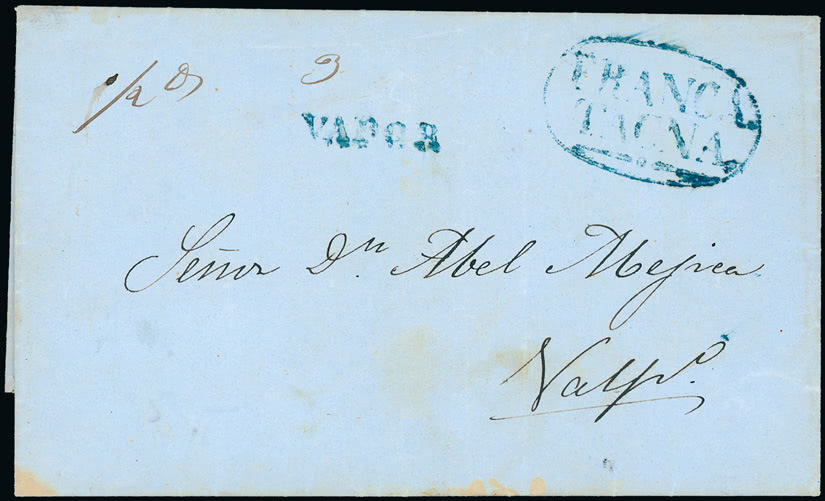 1/2 3
VAPOR
FRANCA
TACNA
Señor Dn. Abel Mejica
Valpo.